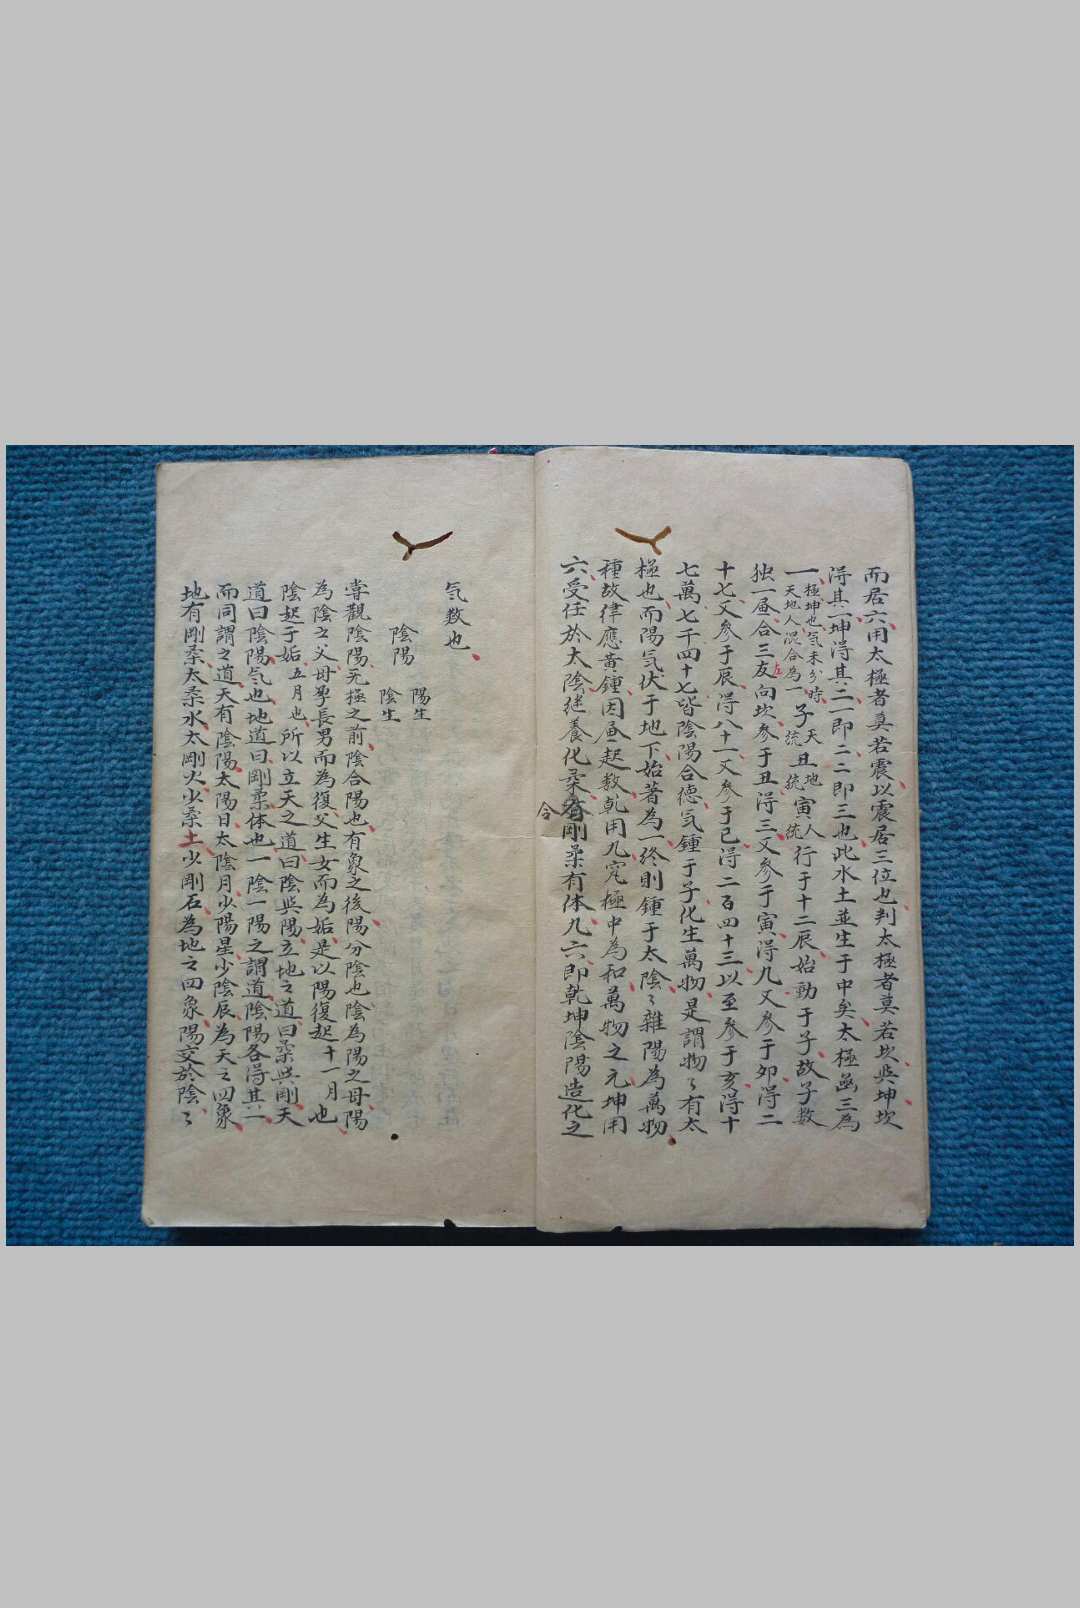 而居六用太極者莫若震以震居三位也判太極者莫若坎与坤坎
得其一坤得其二一即二二即三也此水土並生于中矣太極函三為
一極坤也気未分時天地人混合為一子天統丑地統寅人統行于十二辰始動于子故子数
独一画合三友向坎参于丑得三又参于寅得九又参于卯得二
左
十七又参于辰得八十一又参于巳得二百四十三以至参于亥得十
七萬七千四十七皆陰陽合徳気鍾于子化生萬物是謂物々有太
極也而陽気伏于地下始著為一終則鍾于太陰々雜陽為萬物
種故律應黄鍾因画起数乾用九究極中為和萬物之元坤用
六受任於太陰継養化柔有剛柔有体九六即乾坤陰陽造化之
合
気数也
陰陽 陽生 陰生
嘗觀陰陽无極之前陰合陽也有象之後陽分陰也陰為陽之母陽
為陰之父母孕長男而為復父生女而為姤是以陽復起十一月也
陰起于姤五月也所以立天之道曰陰与陽立地之道曰柔与剛天
道曰陰陽気也地道曰剛柔体也一陰一陽之謂道陰陽各得其一
而同謂之道天有陰陽太陽日太陰月少陽星少陰辰為天之四象
地有剛柔太柔水太剛火少柔土少剛石為地之四象陽交於陰々